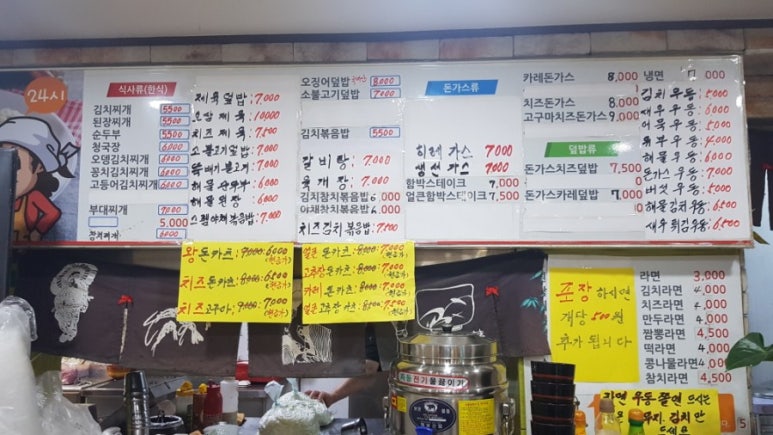 24시
식사류(한식)
김치찌개 5500
된장찌개 5500
순두부 5500
청국장 6000
오뎅김치찌개 6000
꽁치김치찌개 6000
고등어김치찌개 6000
부대찌개 7000
5,000
참치찌개 6000
제육덮밥: 7,000
오삼제육: 10000
치즈제육: 7,500
소불고기덮밥: 7,000
뚝배기불고기: 7,000
해물순두부: 6,000
해물된장: 6,000
스팸야채볶음밥: 7,000
오징어덮밥 8,000
소불고기덮밥 7000
김치볶음밥 5500
갈비탕: 7,000
육개장: 7,000
김치참치볶음밥 6,000
야채참치볶음밥 6,000
치즈김치볶음밥: 7,500
돈가스류
히레가스 7000
생선가스 7000
함박스테이크 7,000
얼큰함박스테이크 7,500
카레돈가스 8,000
치즈돈가스 8,000
고구마치즈돈가스 9,000
덮밥류
돈가스치즈덮밥 7,500
돈가스카레덮밥 7,000
냉면 7,000
김치우동: 5,000
어묵우동: 5,000
유부우동: 4,000
해물우동: 6,000
버섯우동: 5,000
해물김치우동: 6,500
새우튀김우동: 6,500
왕돈카츠: 7,000 6,000
(현금가)
치즈돈카츠: 8,000 6,500
(현금가)
치즈고구마: 9,000 7,000
(현금가)
얼큰돈카츠: 8,000 7,000
(현금가)
고추장돈카츠: 8,000 7,000
(현금가)
카레돈카츠: 8,000 7,000
(현금가)
포장하시면
개당 500원
추가됩니다
라면 3,000
김치라면 4,000
치즈라면 4,000
만두라면 4,000
짬뽕라면 4,500
떡라면 4,000
콩나물라면 4,000
참치라면 4,500
라면 우동 쫄면 드시는
전기물끓이기